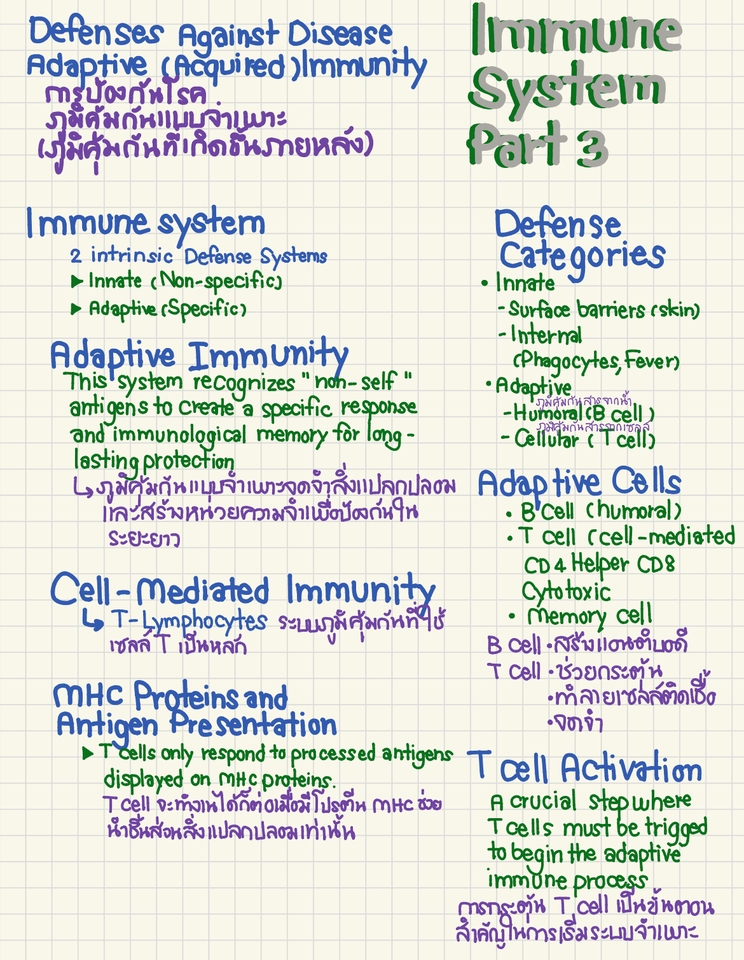 Defenses Against Disease
Adaptive (Acquired) Immunity
การป้องกันโรค
ภูมิคุ้มกันแบบจำเพาะ
(ภูมิคุ้มกันที่เกิดขึ้นภายหลัง)
Immune
System
Part 3
Immune system
2 intrinsic Defense Systems
▶ Innate (Non-specific)
▶ Adaptive (Specific)
Adaptive Immunity
This system recognizes "non-self"
antigens to create a specific response
and immunological memory for long-
lasting protection
↳ ภูมิคุ้มกันแบบจำเพาะจดจำสิ่งแปลกปลอม
และสร้างหน่วยความจำเพื่อป้องกันใน
ระยะยาว
Cell-Mediated Immunity
↳ T-Lymphocytes ระบบภูมิคุ้มกันที่ใช้
เซลล์ T เป็นหลัก
MHC Proteins and
Antigen Presentation
▶ T cells only respond to processed antigens
displayed on MHC proteins.
T cell จะทำงานได้ก็ต่อเมื่อมีโปรตีน MHC ช่วย
นำชิ้นส่วนสิ่งแปลกปลอมเท่านั้น
Defense
Categories
• Innate
- Surface barriers (skin)
- Internal
(Phagocytes, Fever)
• Adaptive
ภูมิคุ้มกันสารจากน้ำ
- Humoral (B cell)
ภูมิคุ้มกันสารจากเซลล์
- Cellular (T cell)
Adaptive Cells
• B Cell (humoral)
• T cell (cell-mediated
CD4 Helper CD8
Cytotoxic
• Memory cell
B cell • สร้างแอนติบอดี
T cell • ช่วยกระตุ้น
• ทำลายเซลล์ติดเชื้อ
• จดจำ
T cell Activation
A crucial step where
T cells must be trigged
to begin the adaptive
immune process
การกระตุ้น T cell เป็นขั้นตอน
สำคัญในการเริ่มระบบจำเพาะ